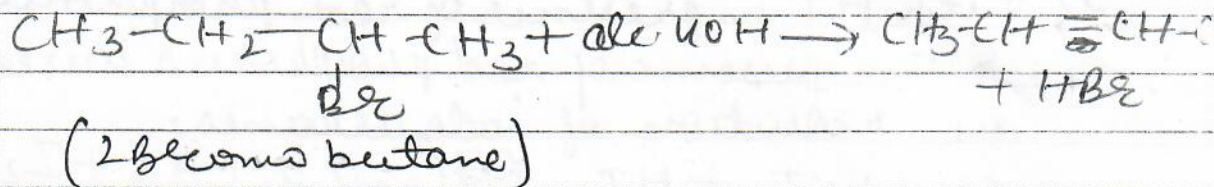 CH3-CH2-CH-CH3 + alc KOH → CH3-CH=CH-C
Br + HBr
(2Bromo butane)